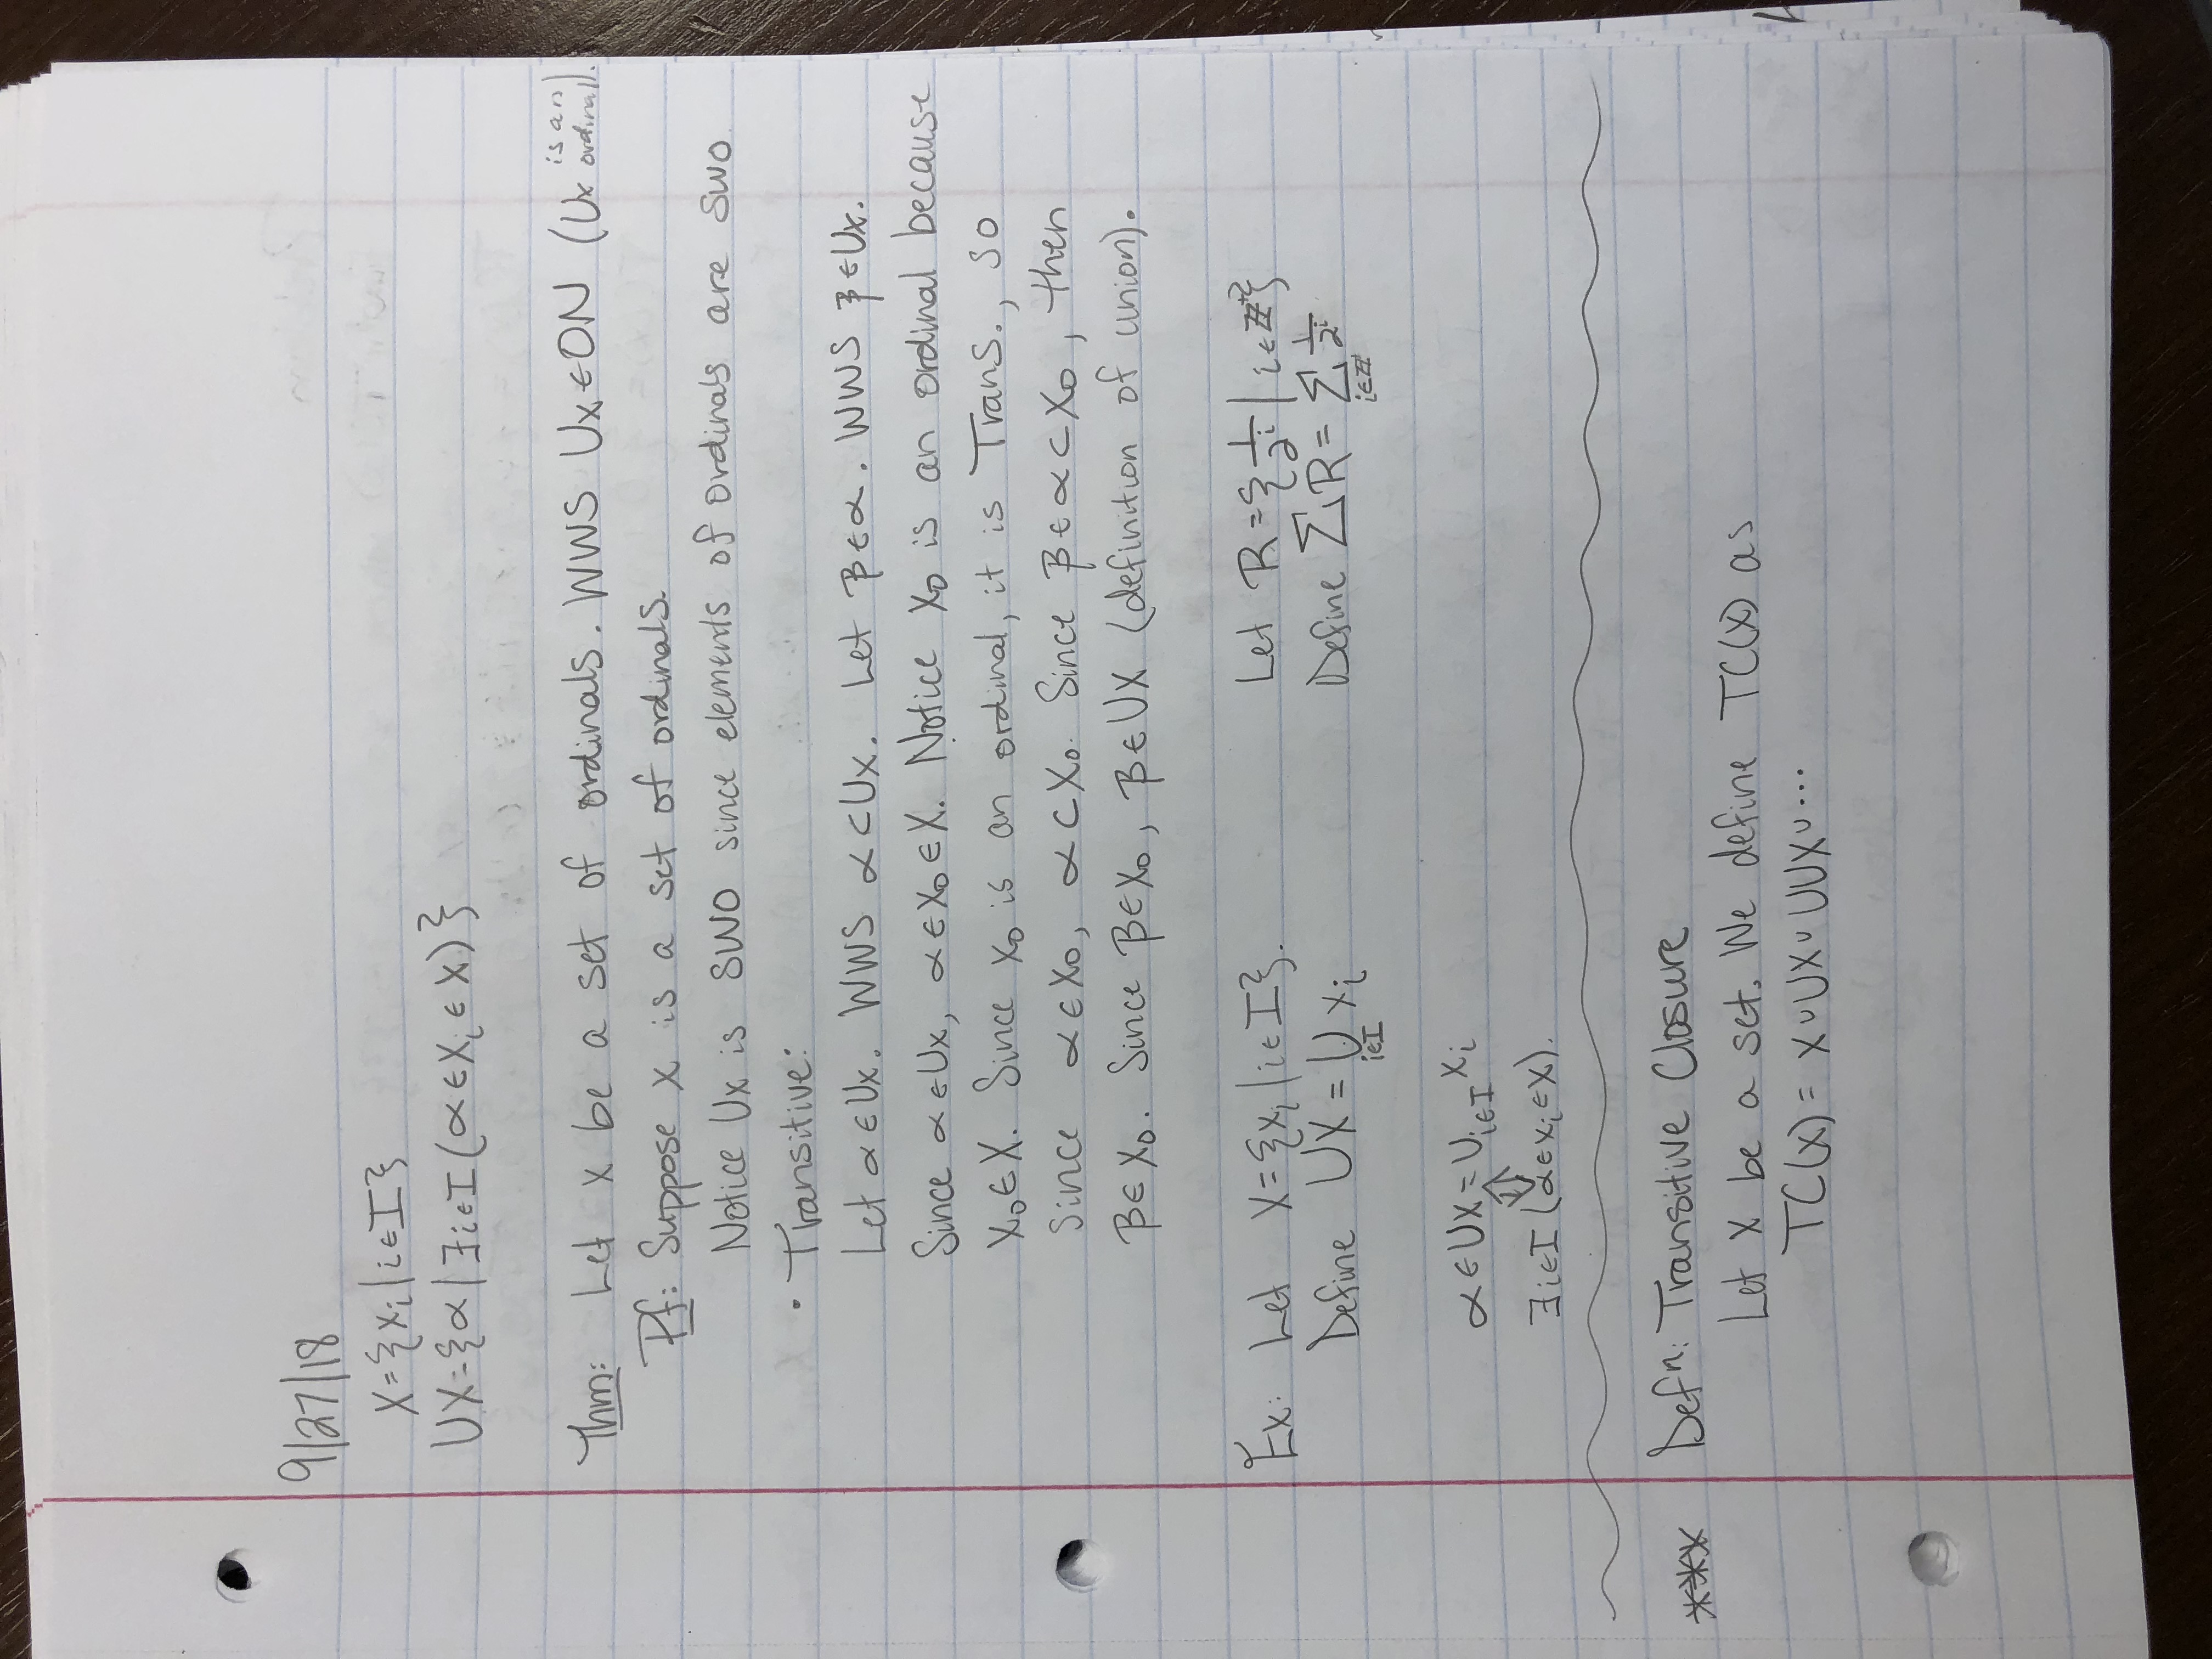 9/27/18
X={xᵢ|i∈I}
∪X={α|∃i∈I(α∈Xᵢ∈X)}
Thm: Let x be a set of ordinals. WWS ∪x∈ON (∪x is an ordinal).
Pf: Suppose x is a set of ordinals.
Notice ∪x is SWO since elements of ordinals are SWO
• Transitive:
Let α∈∪x. WWS α⊂∪x. Let β∈α. WWS β∈∪x.
Since α∈∪x, α∈X₀∈X. Notice X₀ is an ordinal because
X₀∈X. Since x₀ is an ordinal, it is Trans., so
since α∈X₀, α⊂X₀. Since β∈α⊂X₀, then
β∈X₀. Since β∈X₀, β∈∪X (definition of union).
Ex: Let X={xᵢ|i∈I}. Let R={1/2ⁱ|i∈ℤ⁺}
Define ∪X=∪_{i∈I} xᵢ Define ∑R=∑_{i∈ℤ⁺} 1/2ⁱ
α∈∪X=∪_{i∈I} xᵢ
⇕
∃i∈I(α∈xᵢ∈X).
*** Defⁿ: Transitive Closure
Let X be a set. We define TC(X) as
TC(x)= X∪∪X∪∪∪X∪⋯